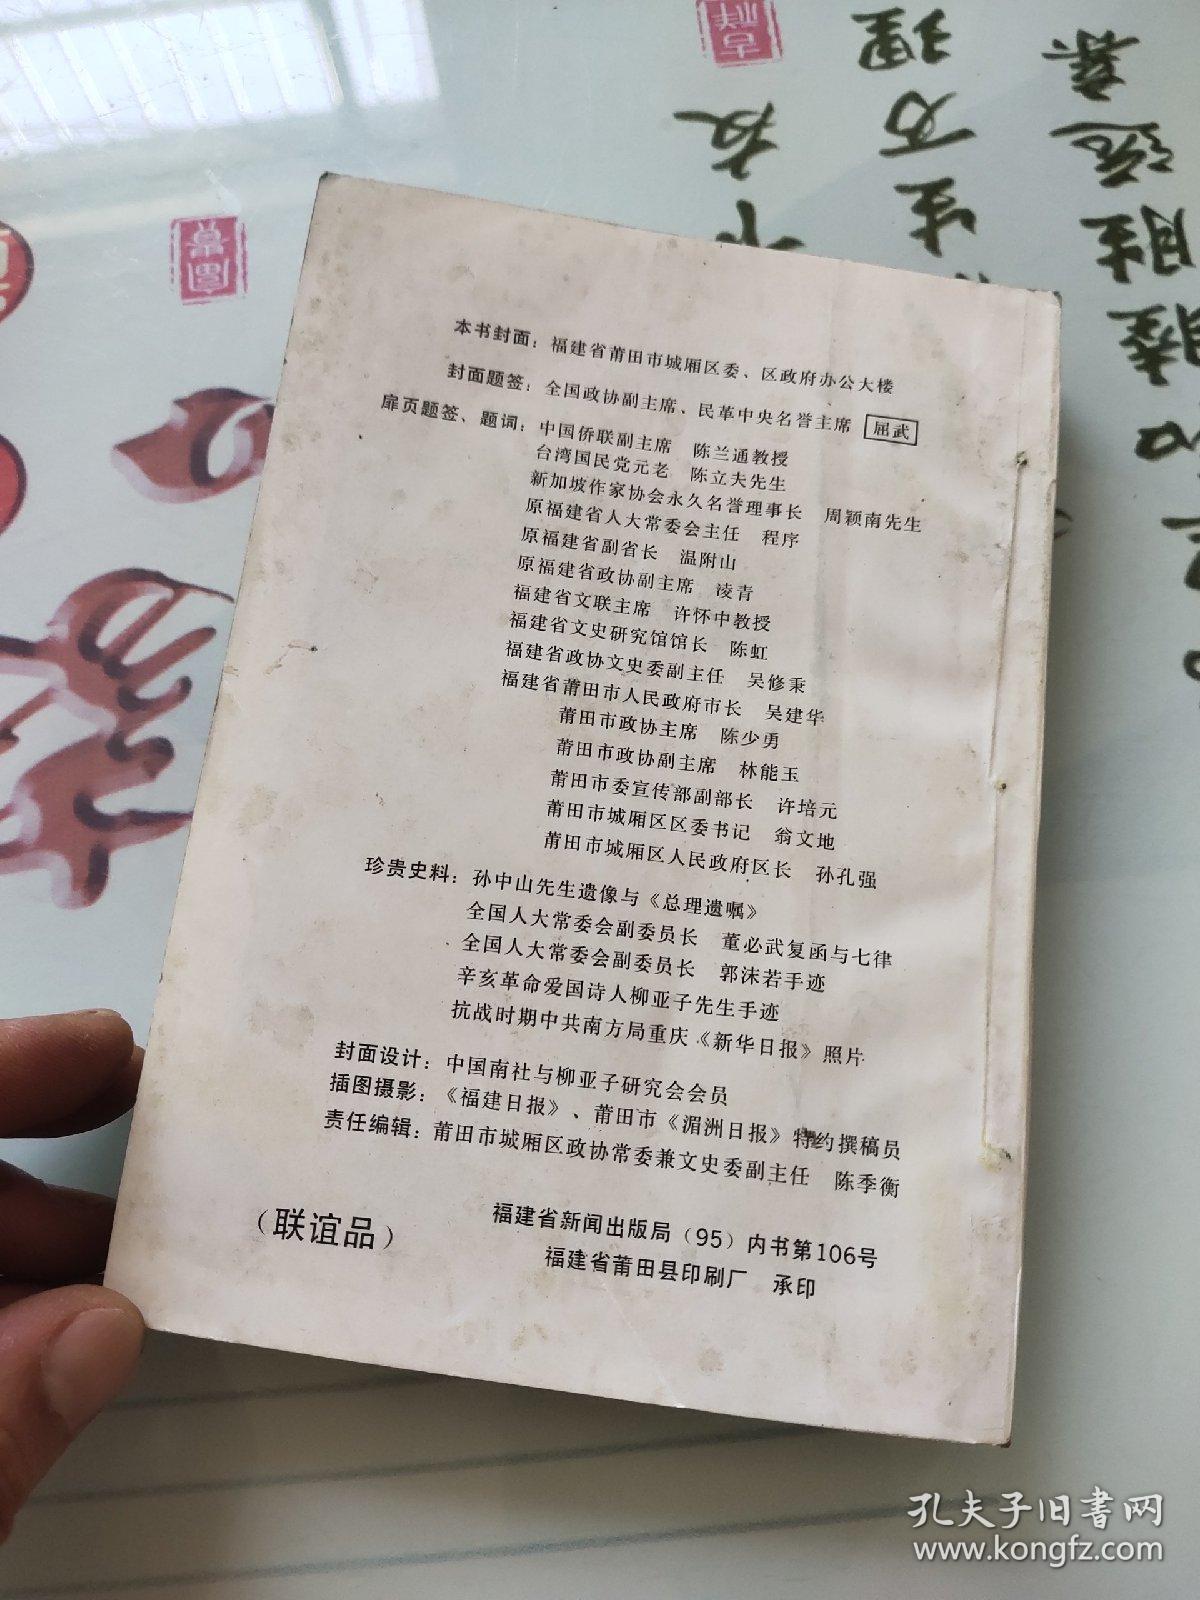 本书封面：福建省莆田市城厢区委、区政府办公大楼
封面题签：全国政协副主席、民革中央名誉主席 屈武
扉页题签、题词：中国侨联副主席 陈兰通教授
台湾国民党元老 陈立夫先生
新加坡作家协会永久名誉理事长 周颖南先生
原福建省人大常委会主任 程序
原福建省副省长 温附山
原福建省政协副主席 凌青
福建省文联主席 许怀中教授
福建省文史研究馆馆长 陈虹
福建省政协文史委副主任 吴修秉
福建省莆田市人民政府市长 吴建华
莆田市政协主席 陈少勇
莆田市政协副主席 林能玉
莆田市委宣传部副部长 许培元
莆田市城厢区区委书记 翁文地
莆田市城厢区人民政府区长 孙孔强
珍贵史料：孙中山先生遗像与《总理遗嘱》
全国人大常委会副委员长 董必武复函与七律
全国人大常委会副委员长 郭沫若手迹
辛亥革命爱国诗人柳亚子先生手迹
抗战时期中共南方局重庆《新华日报》照片
封面设计：中国南社与柳亚子研究会会员
插图摄影：《福建日报》、莆田市《湄洲日报》特约撰稿员
责任编辑：莆田市城厢区政协常委兼文史委副主任 陈季衡
（联谊品）
福建省新闻出版局（95）内书第106号
福建省莆田县印刷厂 承印
孔夫子旧书网
www.kongfz.com